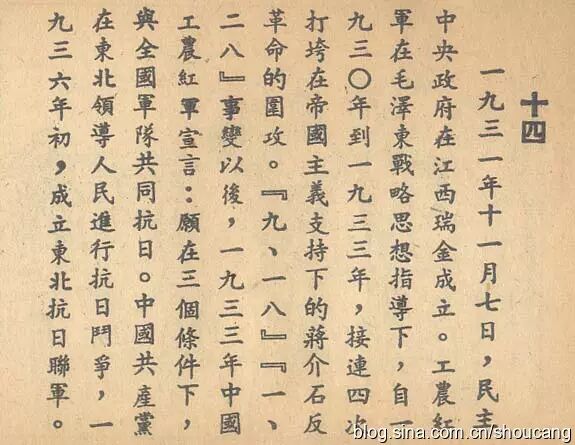 十四
一九三一年十一月七日，民主
中央政府在江西瑞金成立。工農紅
軍在毛澤東戰略思想指導下，自一
九三〇年到一九三三年，接連四次
打垮在帝國主義支持下的蔣介石反
革命的圍攻。『九、一八』『一、
二八』事變以後，一九三三年中國
工農紅軍宣言：願在三個條件下，
與全國軍隊共同抗日。中國共產黨
在東北領導人民進行抗日鬥爭，一
九三六年初，成立東北抗日聯軍。
blog.sina.com.cn/shoucang